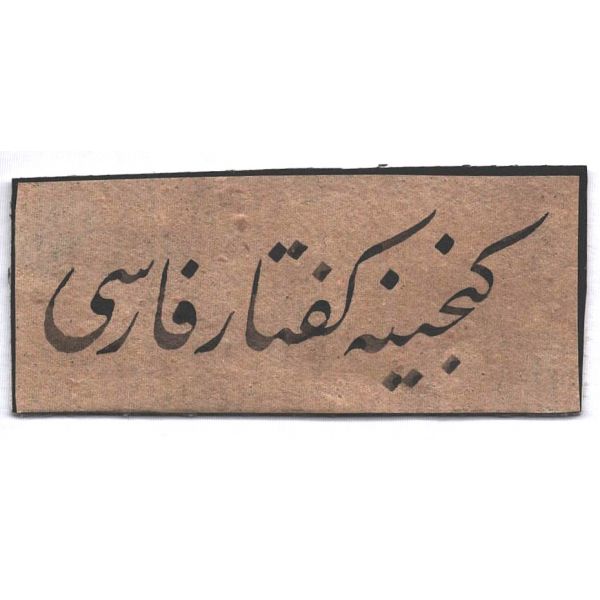 کنجینه کفتار فارسی